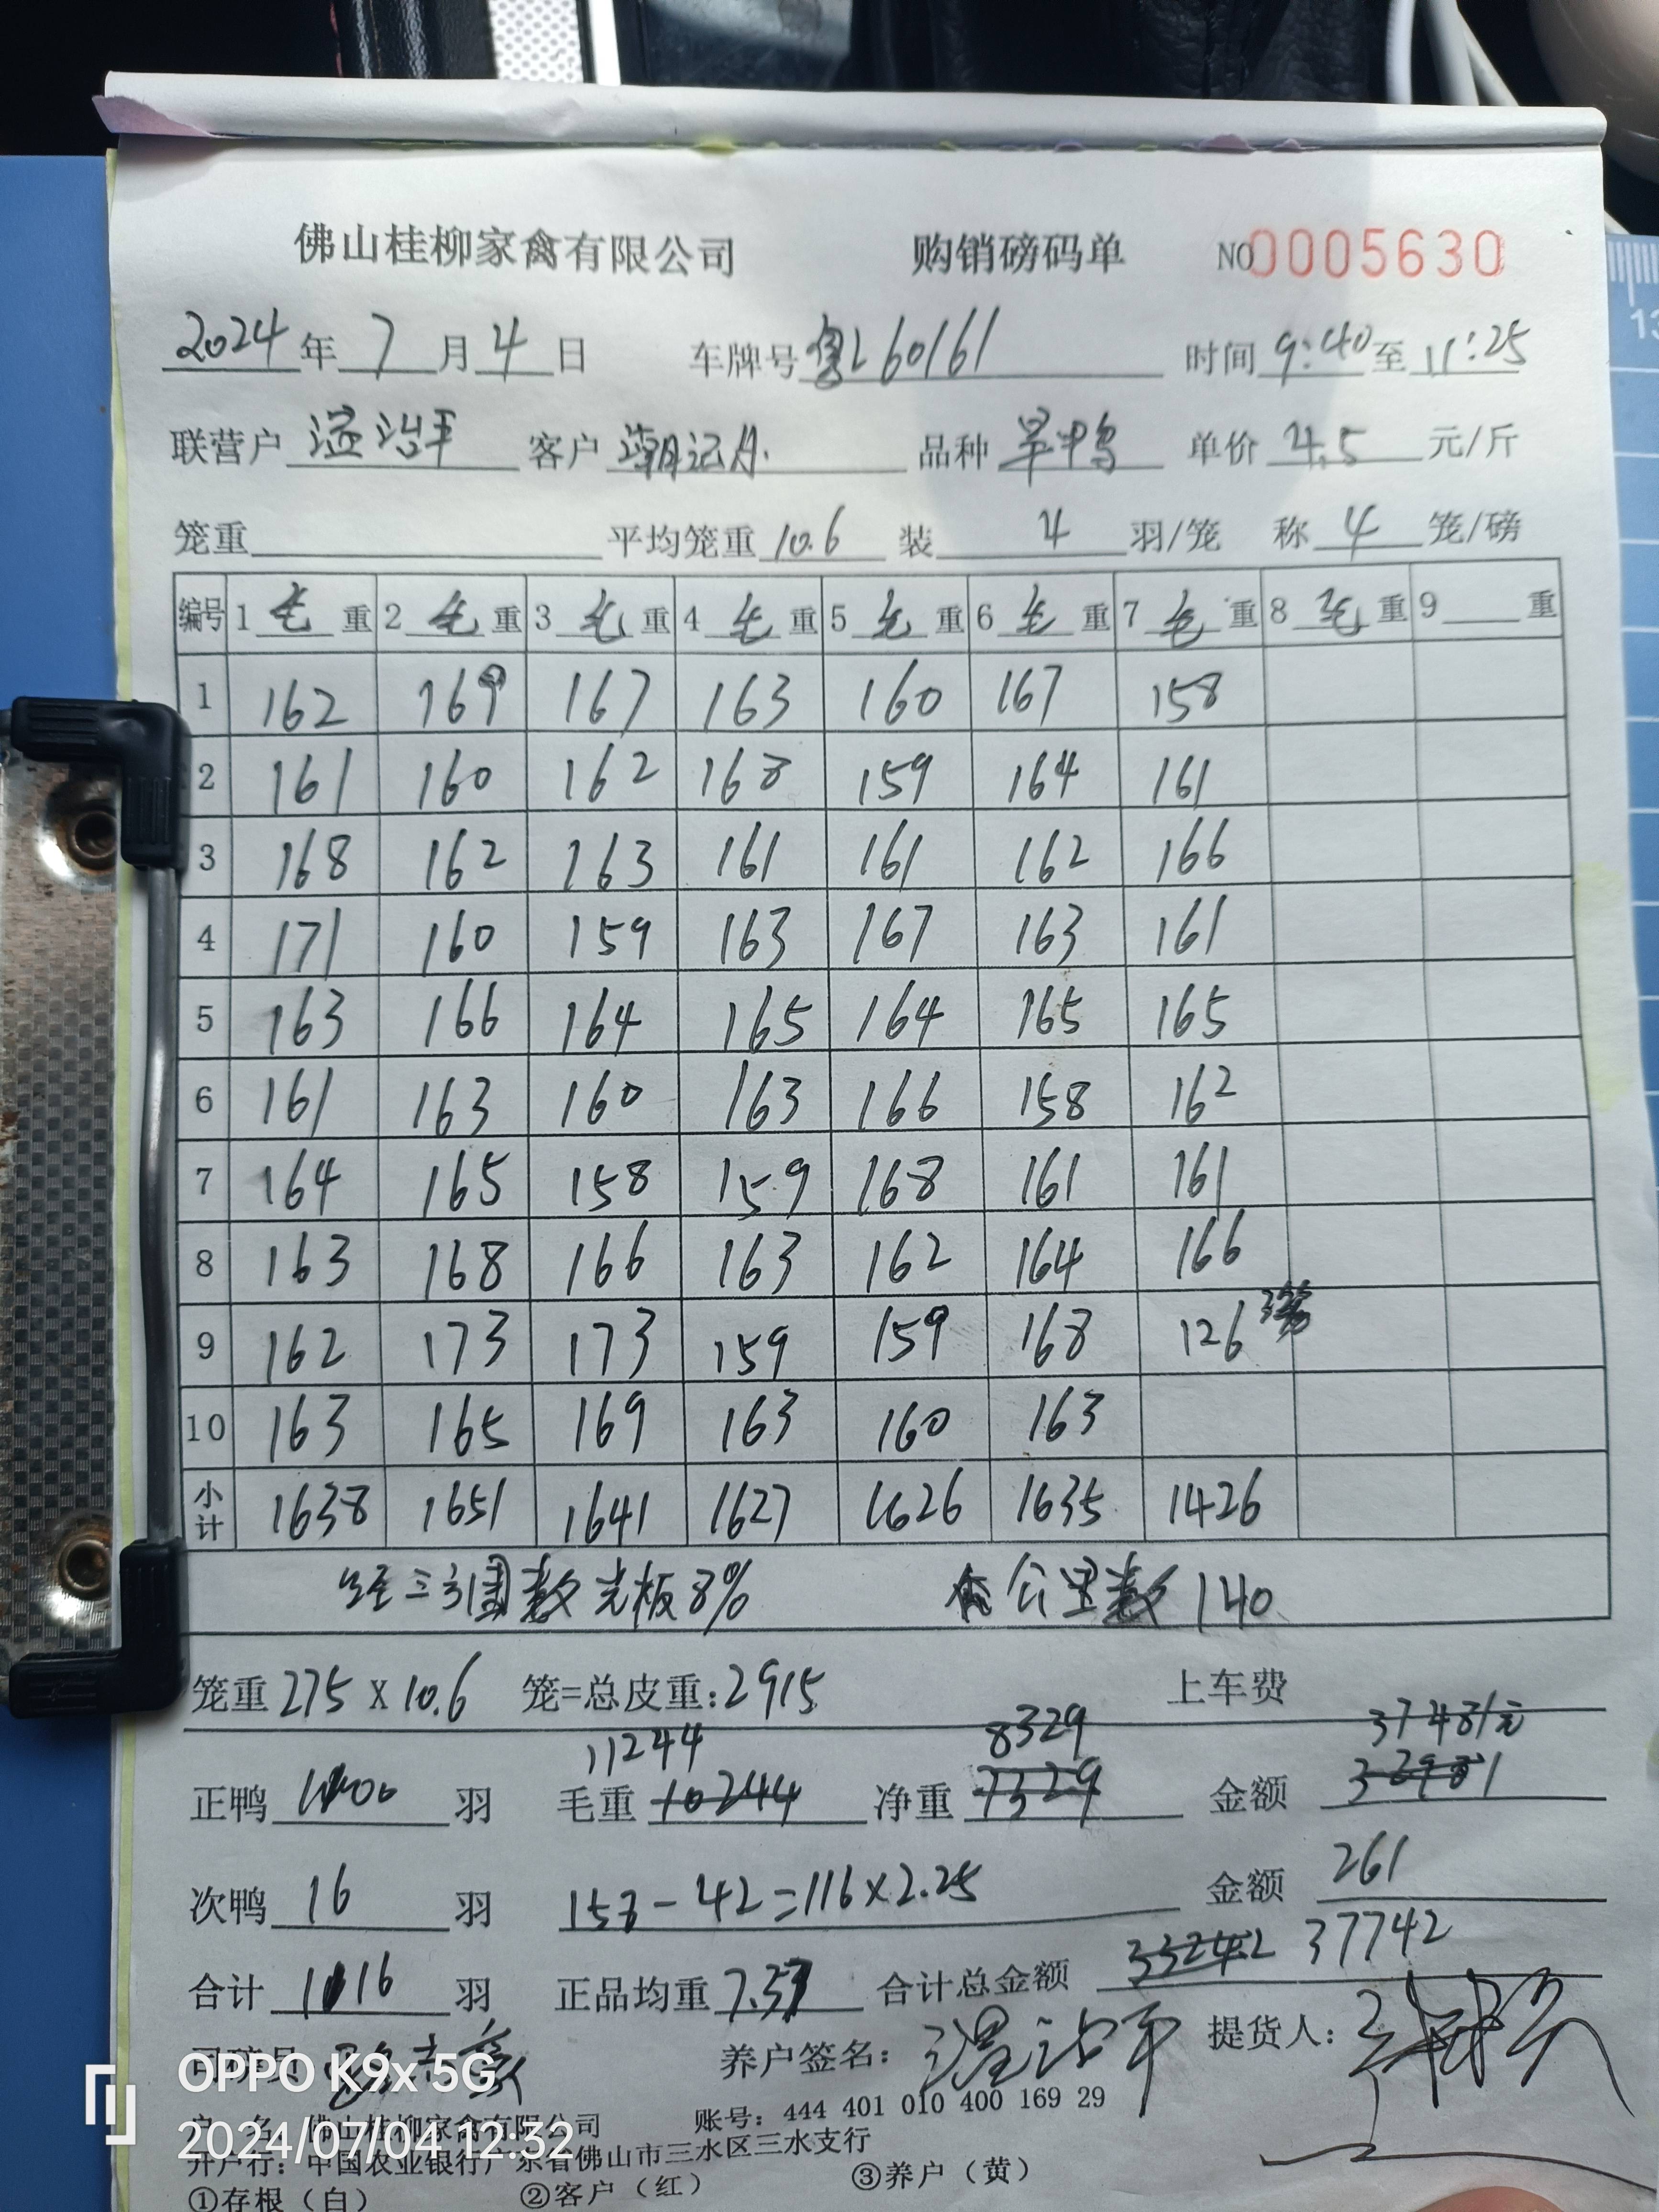 佛山桂柳家禽有限公司 购销磅码单 NO 0005630
2024年7月4日 车牌号 粤L60161 时间 9:40 至 11:25
联营户 温治平 客户 潮记 品种 旱鸭 单价 4.5 元/斤
笼重 平均笼重 10.6 装 4 羽/笼 称 4 笼/磅
编号 1 毛 重 2 毛 重 3 毛 重 4 毛 重 5 毛 重 6 毛 重 7 毛 重 8 毛 重 9 重
1 162 169 167 163 160 167 158
2 161 160 162 168 159 164 161
3 168 162 163 161 161 162 166
4 171 160 159 163 167 163 161
5 163 166 164 165 164 165 165
6 161 163 160 163 166 158 162
7 164 165 158 159 168 161 161
8 163 168 166 163 162 164 166
9 162 173 173 159 159 168 126 3笼
10 163 165 169 163 160 163
小计 1638 1651 1641 1627 1626 1635 1426
经三方围数光板8% 公里数 140
笼重 275 X 10.6 笼=总皮重: 2915 上车费
11244 8329 37481元
正鸭 1100 羽 毛重 10244 净重 7329 金额
次鸭 16 羽 158-42=116×2.25 金额 261
合计 1116 羽 正品均重 7.57 合计总金额 37742
司磅员 养户签名: 温治平 提货人:
OPPO K9x 5G
户 名: 佛山桂柳家禽有限公司 账号: 444 401 010 400 169 29
2024/07/04 12:32
开户行: 中国农业银行广东省佛山市三水区三水支行
①存根（白） ②客户（红） ③养户（黄）